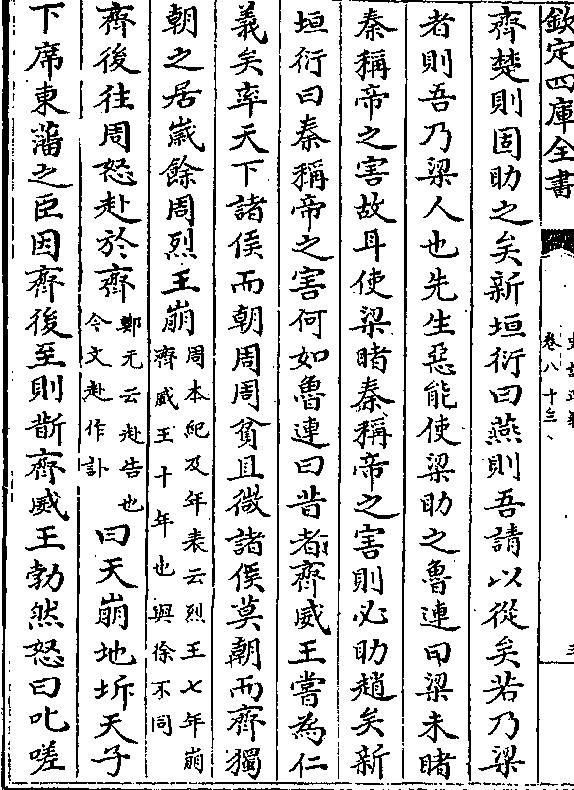 欽定四庫全書
卷八十三
齊楚則固助之矣新垣衍曰燕則吾請以從矣若乃梁
者則吾乃梁人也先生惡能使梁助之魯連曰梁未睹
秦稱帝之害故耳使梁睹秦稱帝之害則必助趙矣新
垣衍曰秦稱帝之害何如魯連曰昔者齊威王嘗為仁
義矣率天下諸侯而朝周周貧且微諸侯莫朝而齊獨
朝之居歲餘周烈王崩周本紀及年表云烈王七年崩齊威王十年也與徐不同
齊後往周怒赴於齊鄭元云赴告也今文赴作訃曰天崩地坼天子
下席東藩之臣因齊後至則斮齊威王勃然怒曰叱嗟